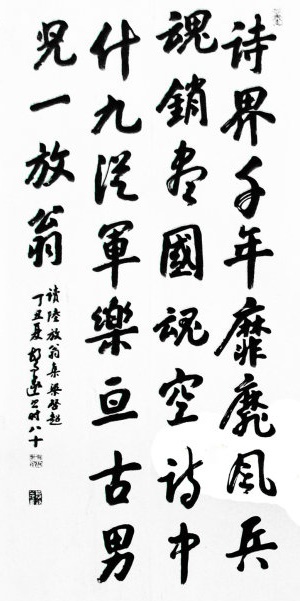 诗界千年靡靡风兵
魂銷盡國魂空诗中
什九從軍樂亘古男
兒一放翁
讀陸放翁集梁啓超
丁丑夏 时八十